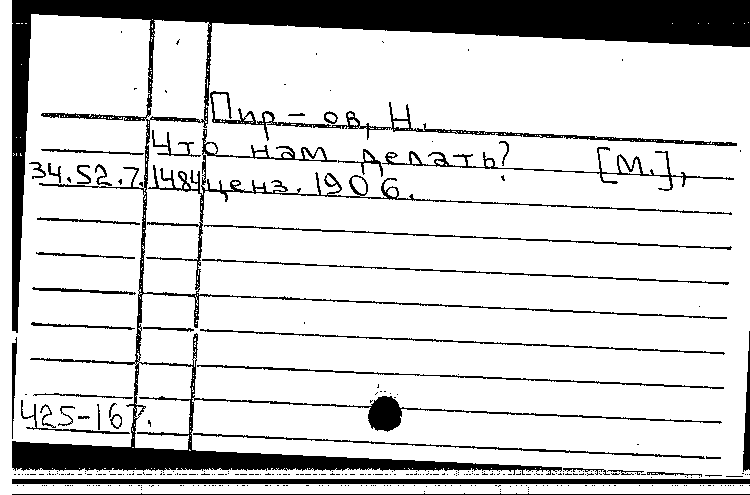 Пир-ов, Н.
Что нам делать? [М.],
34.52.7.1484 ценз. 1906.
425-167.